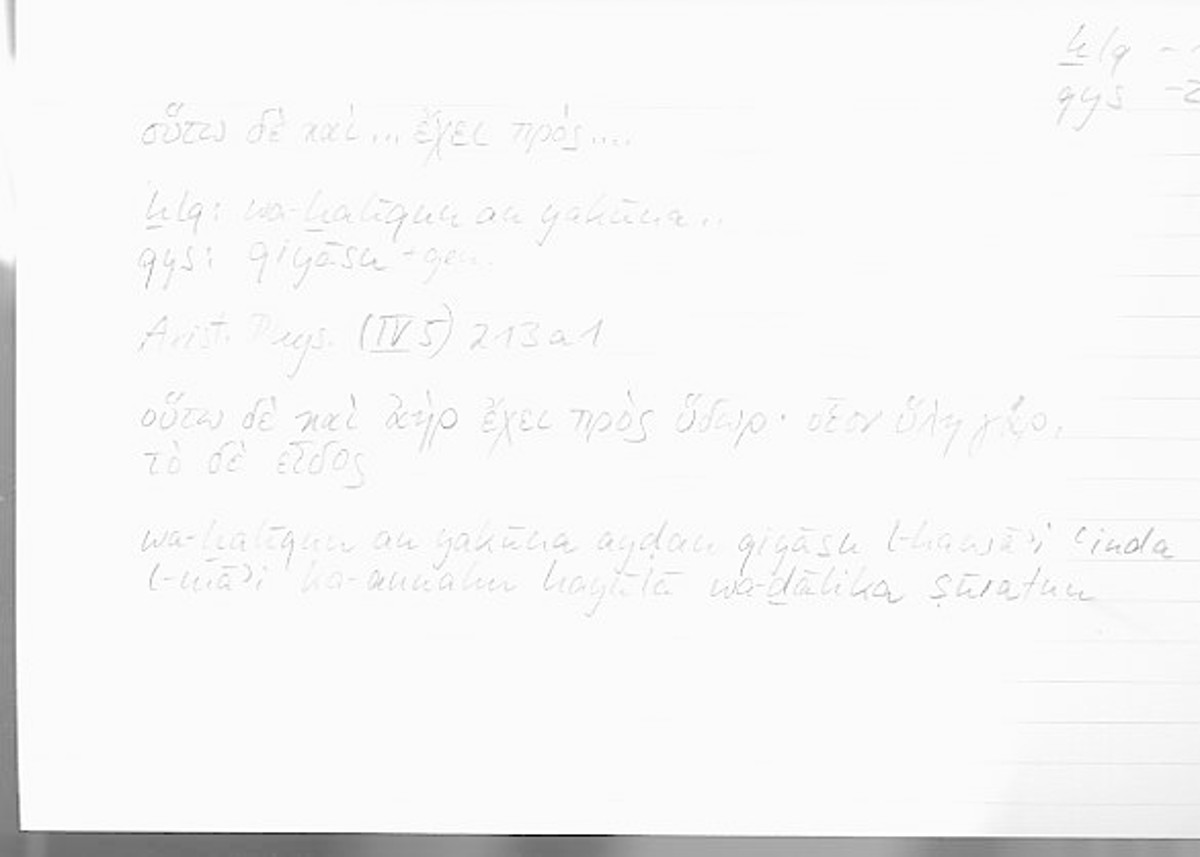 ḫlq
qys
οὕτω δὲ καὶ ... ἔχει πρός ....
ḫlq: wa-ḫalīqun an yakūna..
qys: qiyāsu + gen.
Arist. Phys. (IV 5) 213 a 1
οὕτω δὲ καὶ ἀὴρ ἔχει πρὸς ὕδωρ· οἷον ὕλη γάρ,
τὸ δὲ εἶδος
wa-ḫalīqun an yakūna ayḍan qiyāsu l-hawāʾi ʿinda
l-māʾi ka-annahu hayūlā wa-ḏālika ṣūratun